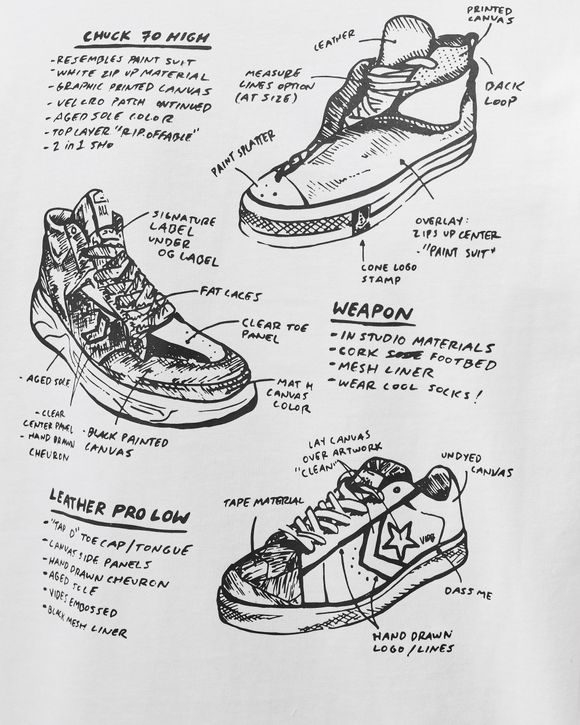 CHUCK 70 HIGH
- RESEMBLES PAINT SUIT
- WHITE ZIP UP MATERIAL
- GRAPHIC PRINTED CANVAS
- VELCRO PATCH
- AGED SOLE COLOR
- TOP LAYER "RIP.OFFABLE"
- 2 in 1 SHO
LEATHER
PRINTED
CANVAS
MEASURE
LINES OPTION
(AT SIZE)
BACK
LOOP
PAINT SPLATTER
OVERLAY:
ZIPS UP CENTER
"PAINT SUIT"
CONE LOGO
STAMP
SIGNATURE
LABEL
UNDER
OG LABEL
FAT LACES
CLEAR TOE
PANEL
MATCH
CANVAS
COLOR
- AGED SOLE
- CLEAR
CENTER PANEL
- HAND DRAWN
CHEVRON
- BLACK PAINTED
CANVAS
WEAPON
- IN STUDIO MATERIALS
- CORK FOOTBED
- MESH LINER
- WEAR COOL SOCKS!
LEATHER PRO LOW
- "TAP D" TOE CAP/TONGUE
- CANVAS SIDE PANELS
- HAND DRAWN CHEVRON
- AGED SOLE
- VIDES EMBOSSED
- BLACK MESH LINER
LAY CANVAS
OVER ARTWORK
"CLEAN"
UNDYED
CANVAS
TAPE MATERIAL
DASS ME
HAND DRAWN
LOGO/LINES